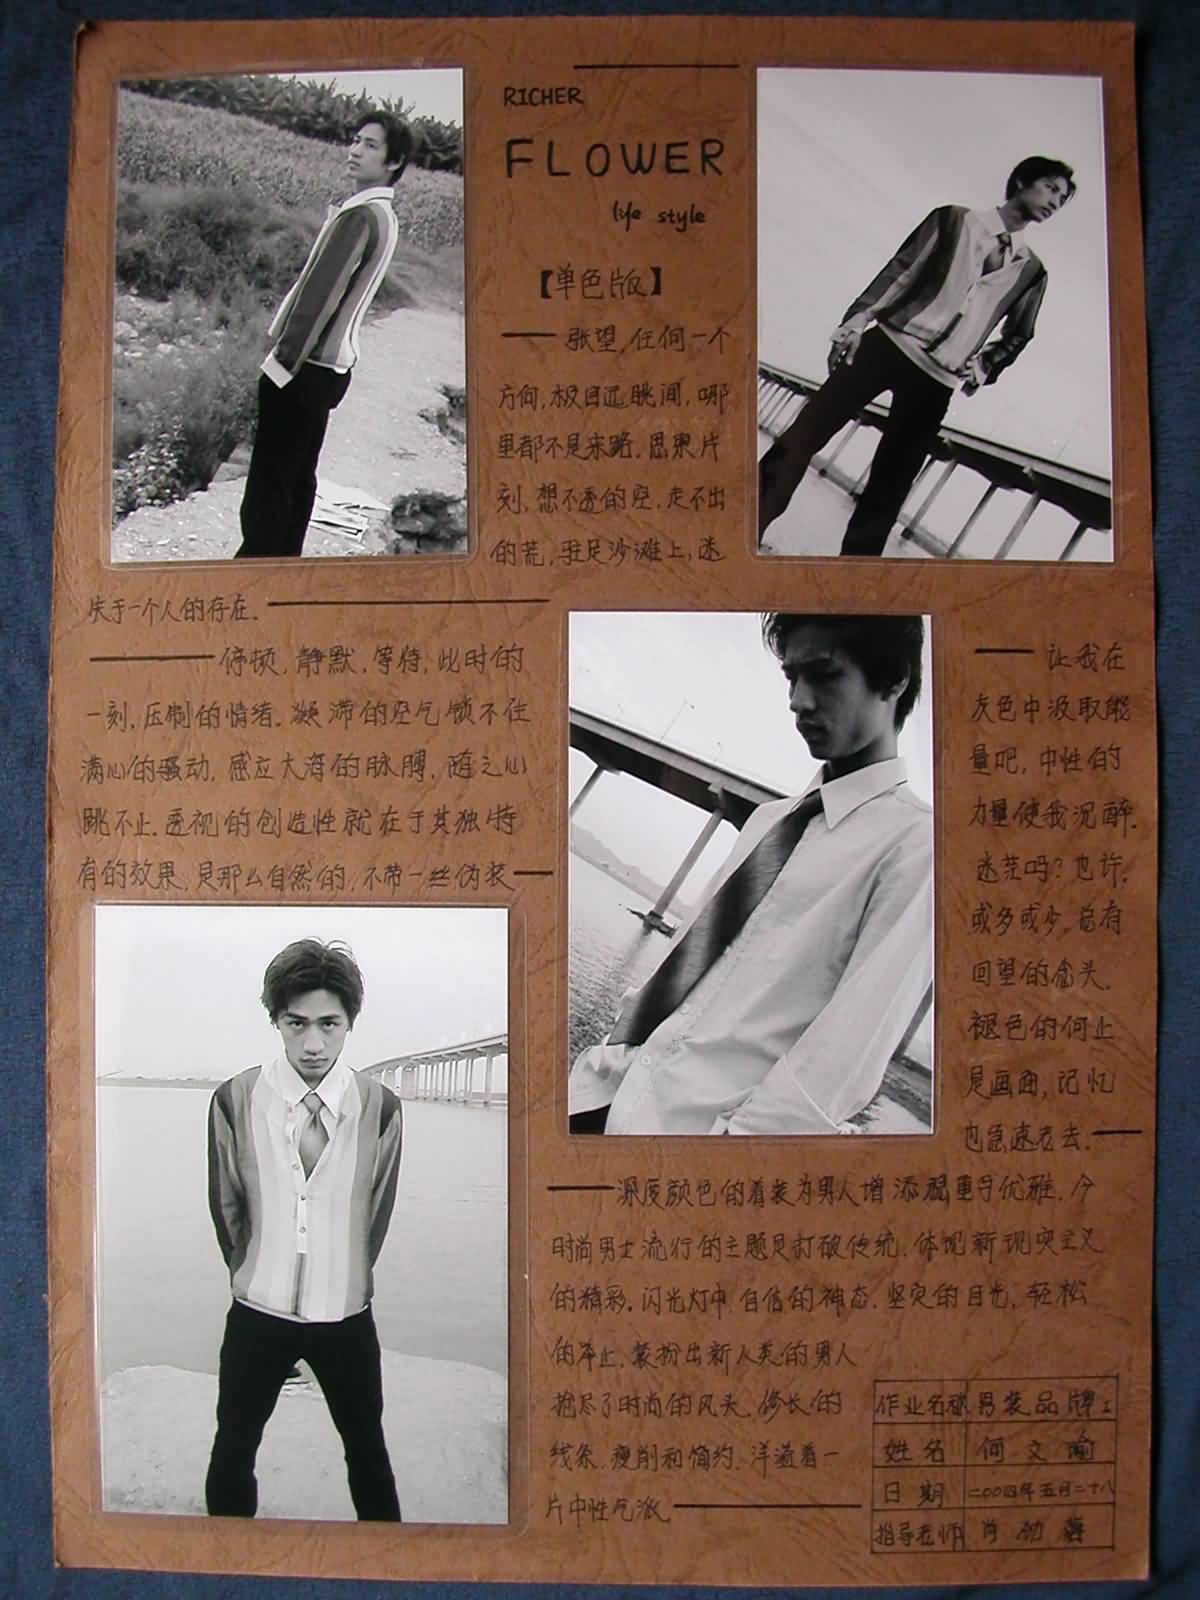 RICHER
FLOWER
life style
【单色版】
张望,任何一个
方向,极目远眺间,哪
里都不是来路.思索片
刻,想不透的空,走不出
的荒,驻足沙滩上,迷
失于一个人的存在.
停顿,静默,等待,此时的
一刻,压制的情绪.凝滞的空气锁不住
满心的骚动,感应大海的脉膊,随之心
跳不止.透视的创造性就在于其独特
有的效果,是那么自然的,不带一丝伪装
让我在
灰色中汲取能
量吧,中性的
力量使我沉醉.
迷茫吗?也许.
或多或少,总有
回望的念头.
褪色的何止
是画面,记忆
也急速在去.
深度颜色的着装为男人增添稳重与优雅.今
时尚男士流行的主题是打破传统.体现新现实主义
的精彩.闪光灯中,自信的神态.坚定的目光.轻松
的举止,装扮出新人类的男人
抢尽了时尚的风头.修长的
线条.瘦削和简约.洋溢着一
片中性气派
作业名称 男装品牌
姓名 何文瑜
日期 二00四年五月二十八
指导老师 肖劲蓉